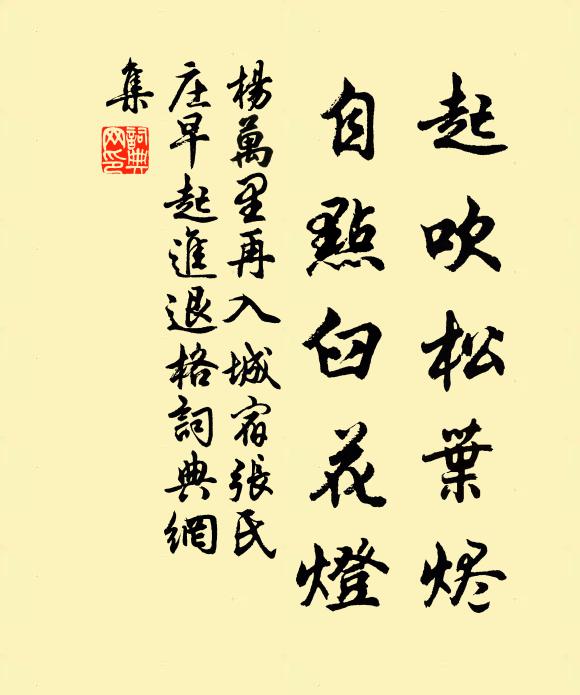 起吹松葉烬
自點臼花燈
楊萬里再入城宿張氏
庄早起進退格詞典網
集
詞典網印